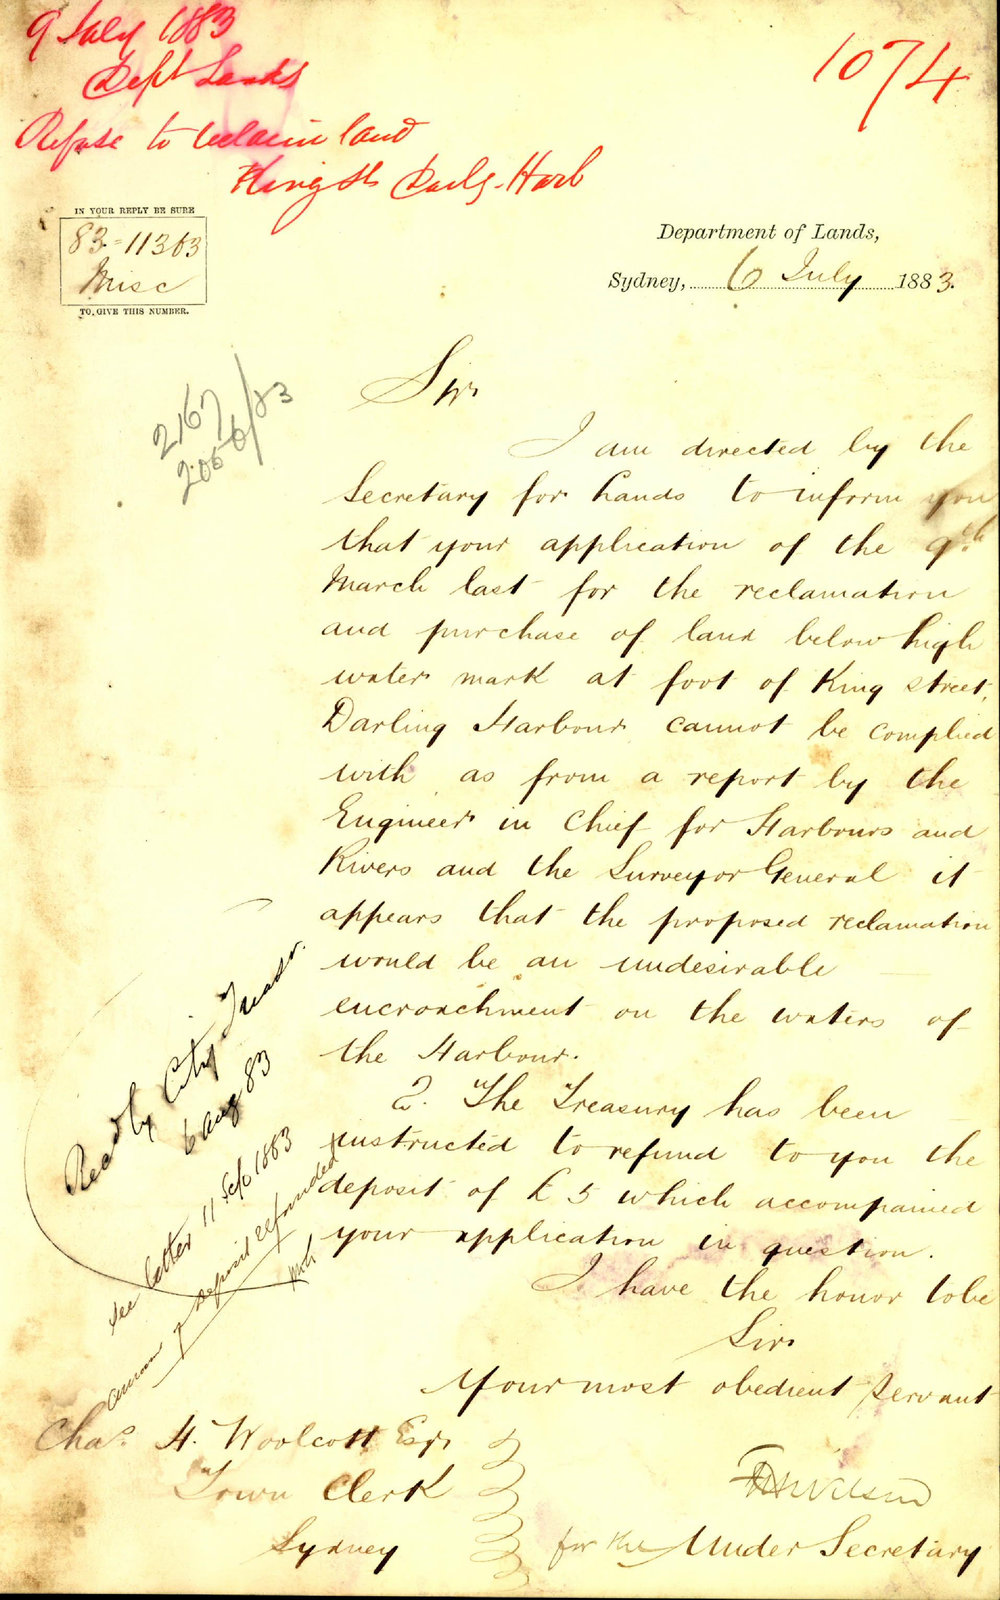 9 July 1883
Dept Lands
Refuse to reclaim land
King St Darlg. Harb
1074
IN YOUR REPLY BE SURE
83=11363
Misc
TO GIVE THIS NUMBER.
Department of Lands,
Sydney, 6 July 1883.
2167
83
Sir
I am directed by the
Secretary for Lands to inform you
that your application of the 9th
March last for the reclamation
and purchase of land below high
water mark at foot of King street,
Darling Harbour cannot be complied
with as from a report by the
Engineer in Chief for Harbours and
Rivers and the Surveyor General it
appears that the proposed reclamation
would be an undesirable
encroachment on the waters of
the Harbour.
2. The Treasury has been
instructed to refund to you the
deposit of £5 which accompanied
your application in question.
I have the honor to be
Sir
Your most obedient Servant
Recd by City Treasr.
6 Aug 83
See letter 11 Sep 1883
deposit refunded
Chas. H. Woolcott Esqr
Town Clerk
Sydney
for the Under Secretary